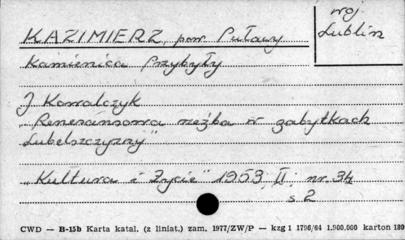 KAZIMIERZ, pow. Puławy
woj
Lublin
Kamienica Przybyły
J Kowalczyk
„Renesansowa rzeźba w zabytkach
Lubelszczyzny"
„Kultura i Życie" 1953, II, nr. 34
s 2
CWD — B-15b Karta katal. (z liniat.) zam. 1977/ZW/P — kzg 1 1796/64 1.900.000 karton 180